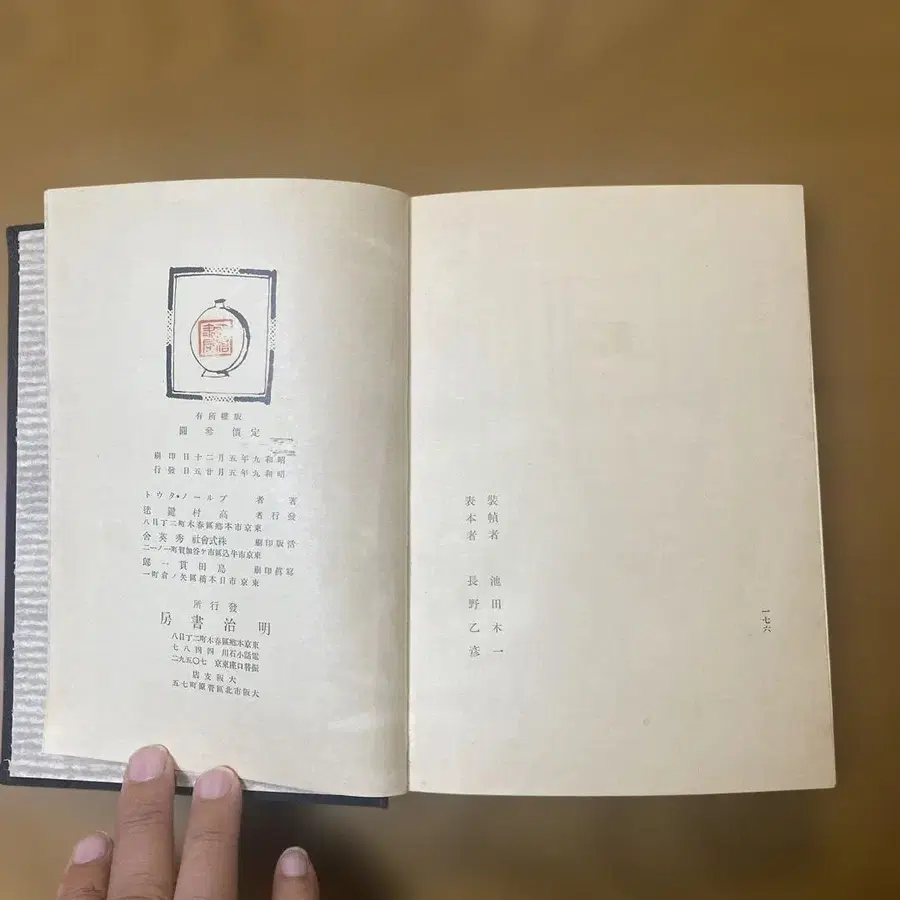 一七六
裝幀者 池田木一
表本者 長野乙彦
明治書房
版權所有
定價 參圓
昭和九年五月二十日印刷
昭和九年五月廿五日發行
著者 ブルーノ・タウト
發行者 高村鍵
東京市本鄕區春木町二丁目八
活版印刷 株式會社秀英舍
東京市牛込區市ケ谷加賀町一ノ一二
寫眞印刷 島田貫一郞
東京市日本橋區矢ノ倉町一
發行所
明治書房
東京本鄕區春木町二丁目八
電話小石川四四八七
振替口座東京七〇五九二
大阪支店
大阪市北區菅原町七五